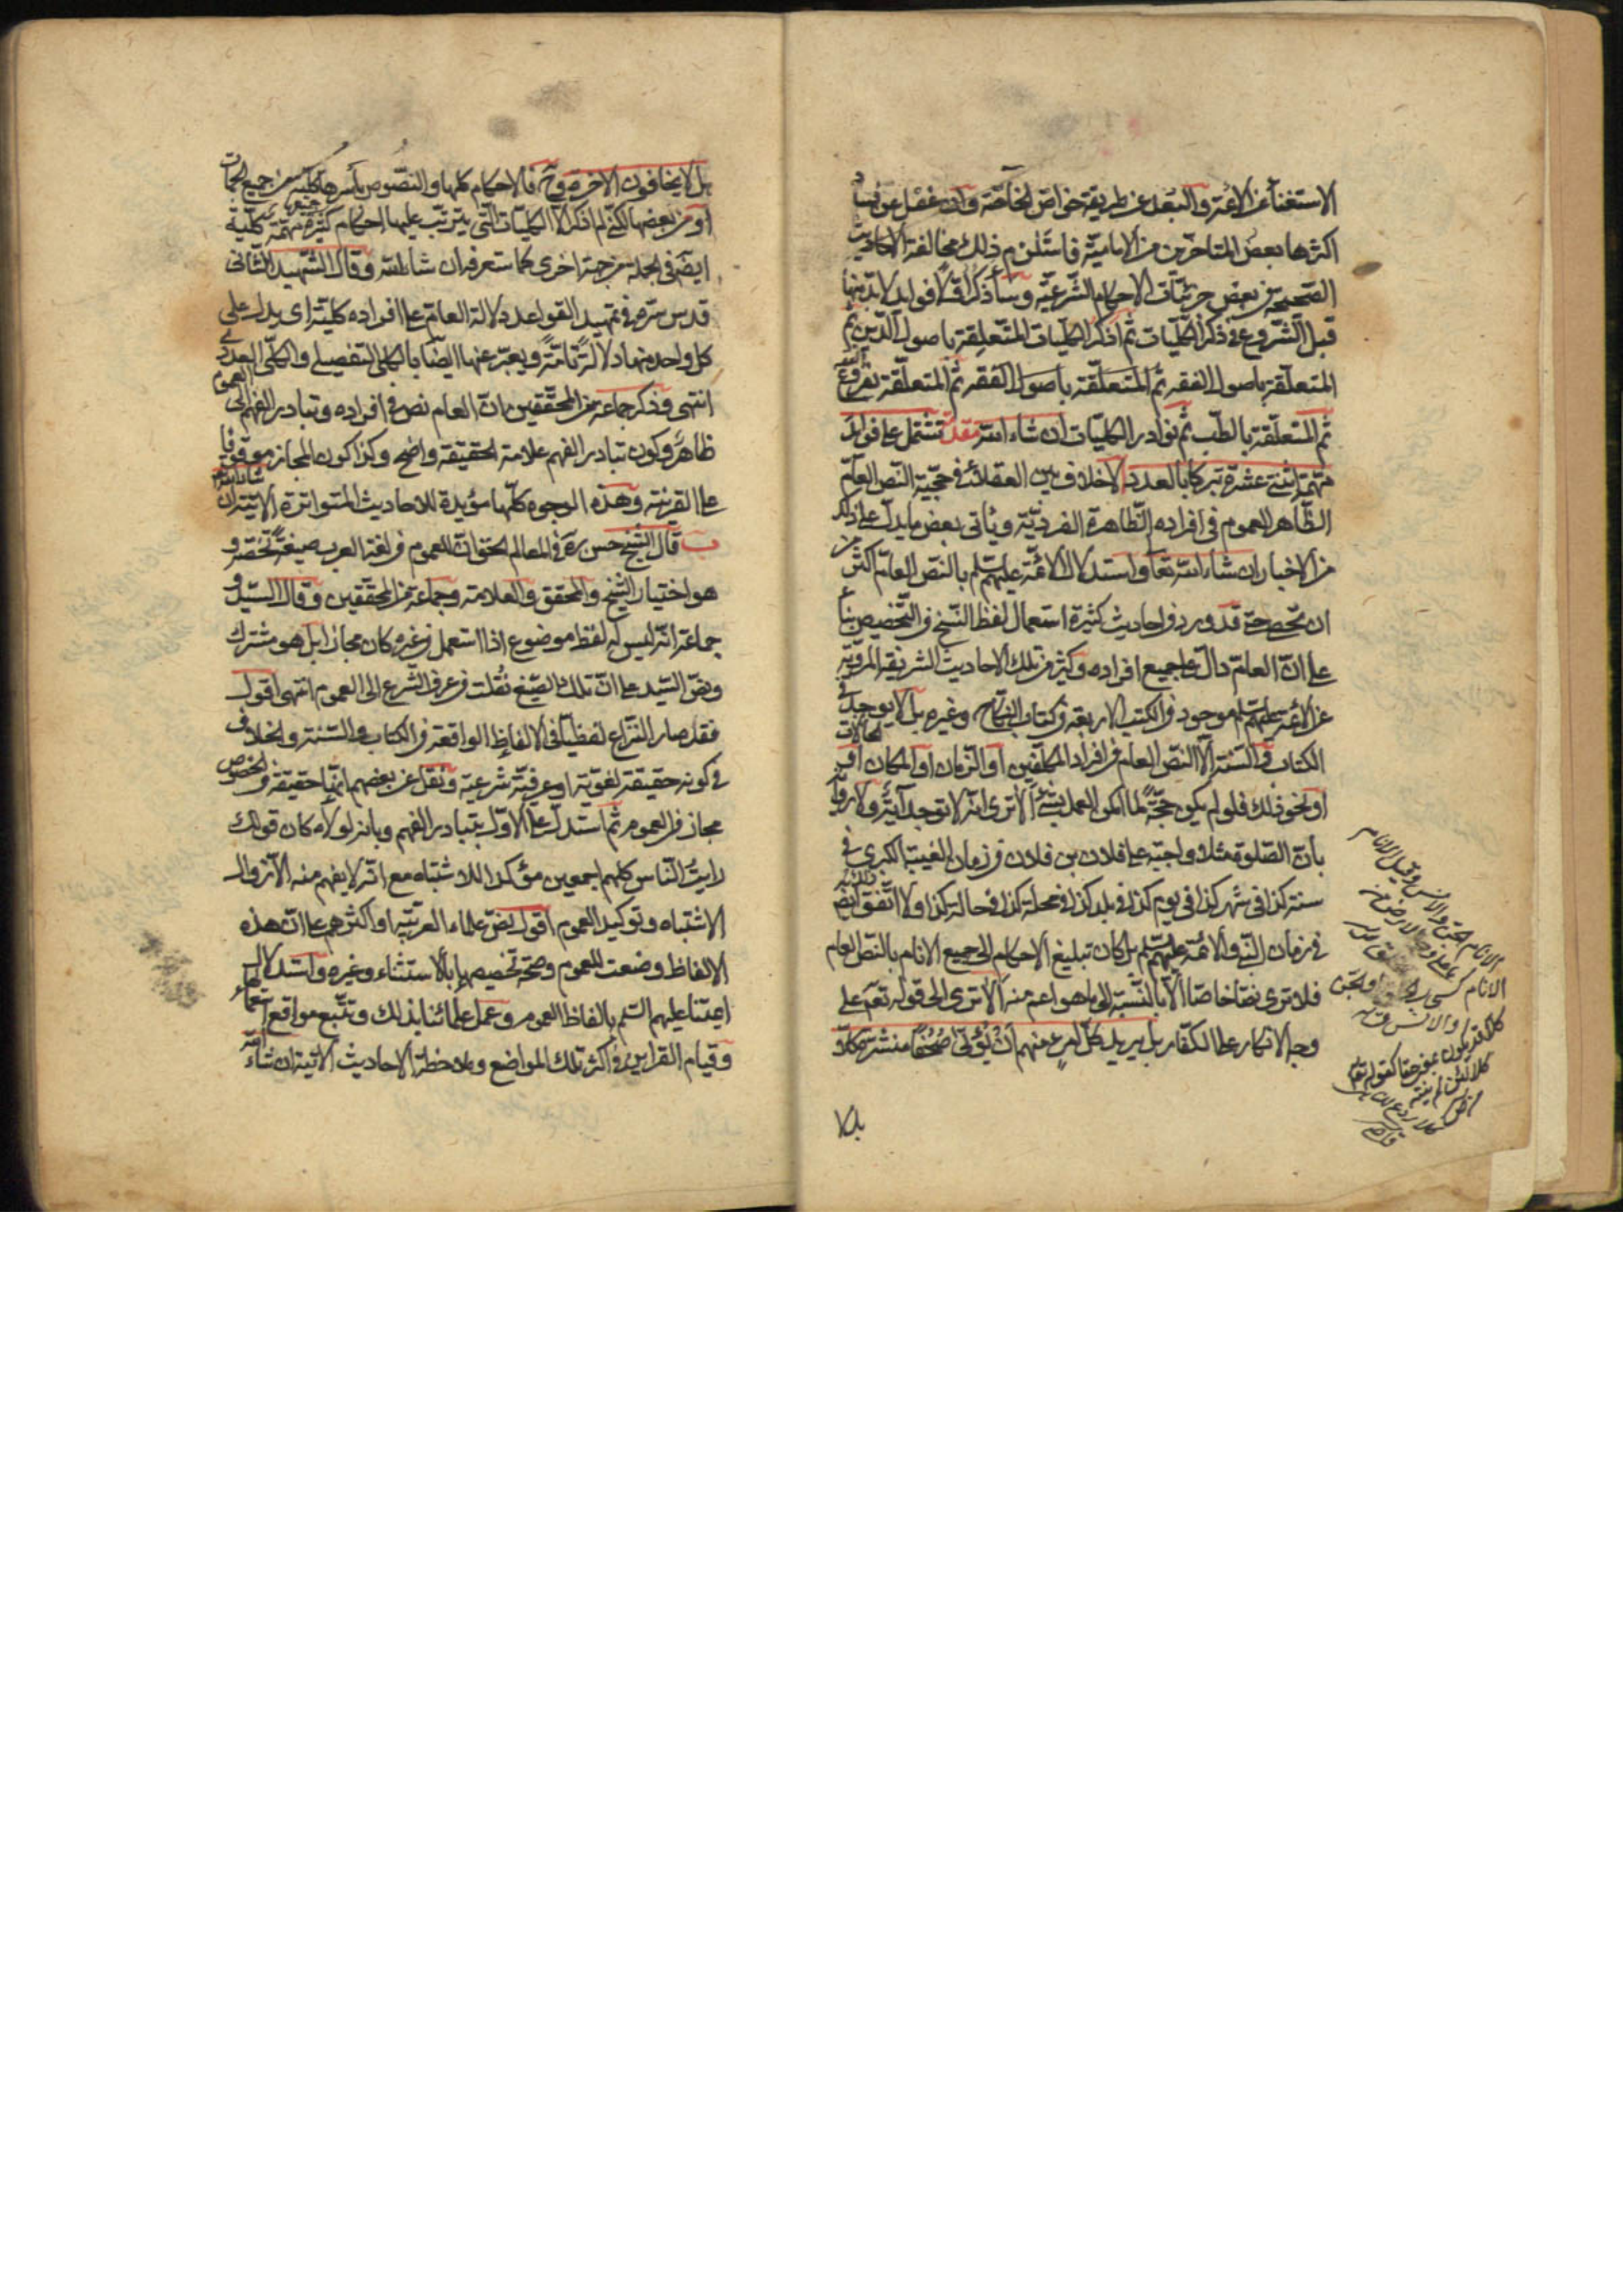 الاستغناء عن الائمة والبعد عن طريقة خواص الخاصة وان غفل عن فساد
اكثرها بعض المتاخرين من الامامية فاستلزم ذلك مخالفة الاحاديث
الصحيحة في بعض جزئيات الاحكام الشرعية وسأذكر اولا فوايد لابد منها
قبل الشروع في ذكر الكليات ثم اذكر الكليات المتعلقة باصول الدين ثم
المتعلقة باصول الفقه ثم المتعلقة بفروع الفقه
ثم المتعلقة بالطب ثم نوادر الكليات ان شاء الله مقدمة تشتمل على فوايد
مهمة اثنتي عشرة تبركا بالعدد ا لاخلاف بين العقلاء في حجية النص العام
الظاهر العموم في افراده الظاهرة الفردية ويأتي بعض ما يدل على ذلك
من الاخبار ان شاء الله تعا واستدلال الائمة عليهم السلم بالنص العام اكثر من
ان يحصى حتى قد ورد في احاديث كثيرة استعمال لفظ النسخ في التخصيص بناء
على ان العام دال على جميع افراده وكثير من تلك الاحاديث الشريفة المروية
عن الائمة عليهم السلم موجود في الكتب الاربعة في كتاب النكاح وغيره بل لا يوجد في
الكتاب والسنة الا النص العام في افراد المكلفين او الزمان او المكان او الحالات
او نحو ذلك فلو لم يكن حجة لما امكن العمل بشئ الا ترى انه لا توجد آية ولا رواية
بان الصلوة مثلا واجبة على فلان بن فلان في زمان الغيبة الكبرى في
سنة كذا في شهر كذا في يوم كذا في بلد كذا في محلة كذا في حالة كذا ولا اتفق ذلك ايضا
في زمان النبي والائمة عليهم السلم بل كان تبليغ الاحكام الى جميع الانام بالنص العام
فلا ترى نصا خاصا الا بالنسبة الى ما هو اعم منه الا ترى الى قوله تعم على
وجه الانكار على الكفار بل يريد كل امرئ منهم ان يؤتى صحفا منشرة كلا
بل لا
الانام الجن والانس وقيل الانام
ما على وجه الارض من
بل لا يخافون الاخرة وح فالاحكام كلها والنصوص باسرها كلية من جميع الجهات
او من بعضها لكني لم اذكر الا الكليات التي يترتب عليها احكام كثيرة مهمة كلية
ايضا في الجملة من جهة اخرى كما ستعرفه ان شاء الله وقال الشهيد الثاني
قدس سره في تمهيد القواعد دلالة العام على افراده كلية اي يدل على
كل واحد منها دلالة تامة ويعبر عنها ايضا بالكلي التفصيلي والكلي العددي
انتهى وذكر جماعة من المحققين بان العام نص في افراده وتبادر الفهم الى العموم
ظاهر وكون تبادر الفهم علامة الحقيقة واضح وكذا كون المجاز موقوفا
على القرينة وهذه الوجوه كلها مؤيدة للاحاديث المتواترة الاتية ان شاء الله
ب قال الشيخ حسن ره في المعالم الحق ان للعموم في لغة العرب صيغة تخصه و
هو اختيار الشيخ والمحقق والعلامة وجماعة من المحققين وقال السيد و
جماعة انه ليس له لفظ موضوع اذا استعمل في غيره كان مجازا بل هو مشترك
ونص السيد على ان تلك الصيغ نقلت في عرف الشرع الى العموم انتهى اقول
فقد صار النزاع لفظيا في الالفاظ الواقعة في الكتاب والسنة والخلاف
في كونه حقيقة لغوية او عرفية شرعية ونقل عن بعضهم انها حقيقة في الخصوص
مجاز في العموم ثم استدل على الاول بتبادر الفهم وبانه لولاه كان قولك
رايت الناس كلهم اجمعين مؤكدا للاشتباه مع انه لا يفهم منه الا زوال
الاشتباه وتوكيد العموم اقول نص علماء العربية او اكثرهم على ان هذه
الالفاظ وضعت للعموم وصحة تخصيصها بالاستثناء وغيره واستدلال
ائمتنا عليهم السلم بالفاظ العموم وعمل علمائنا بذلك وتتبع مواقع استعمالها
وقيام القراين في اكثر تلك المواضع وملاحظة الاحاديث الاتية ان شاء الله